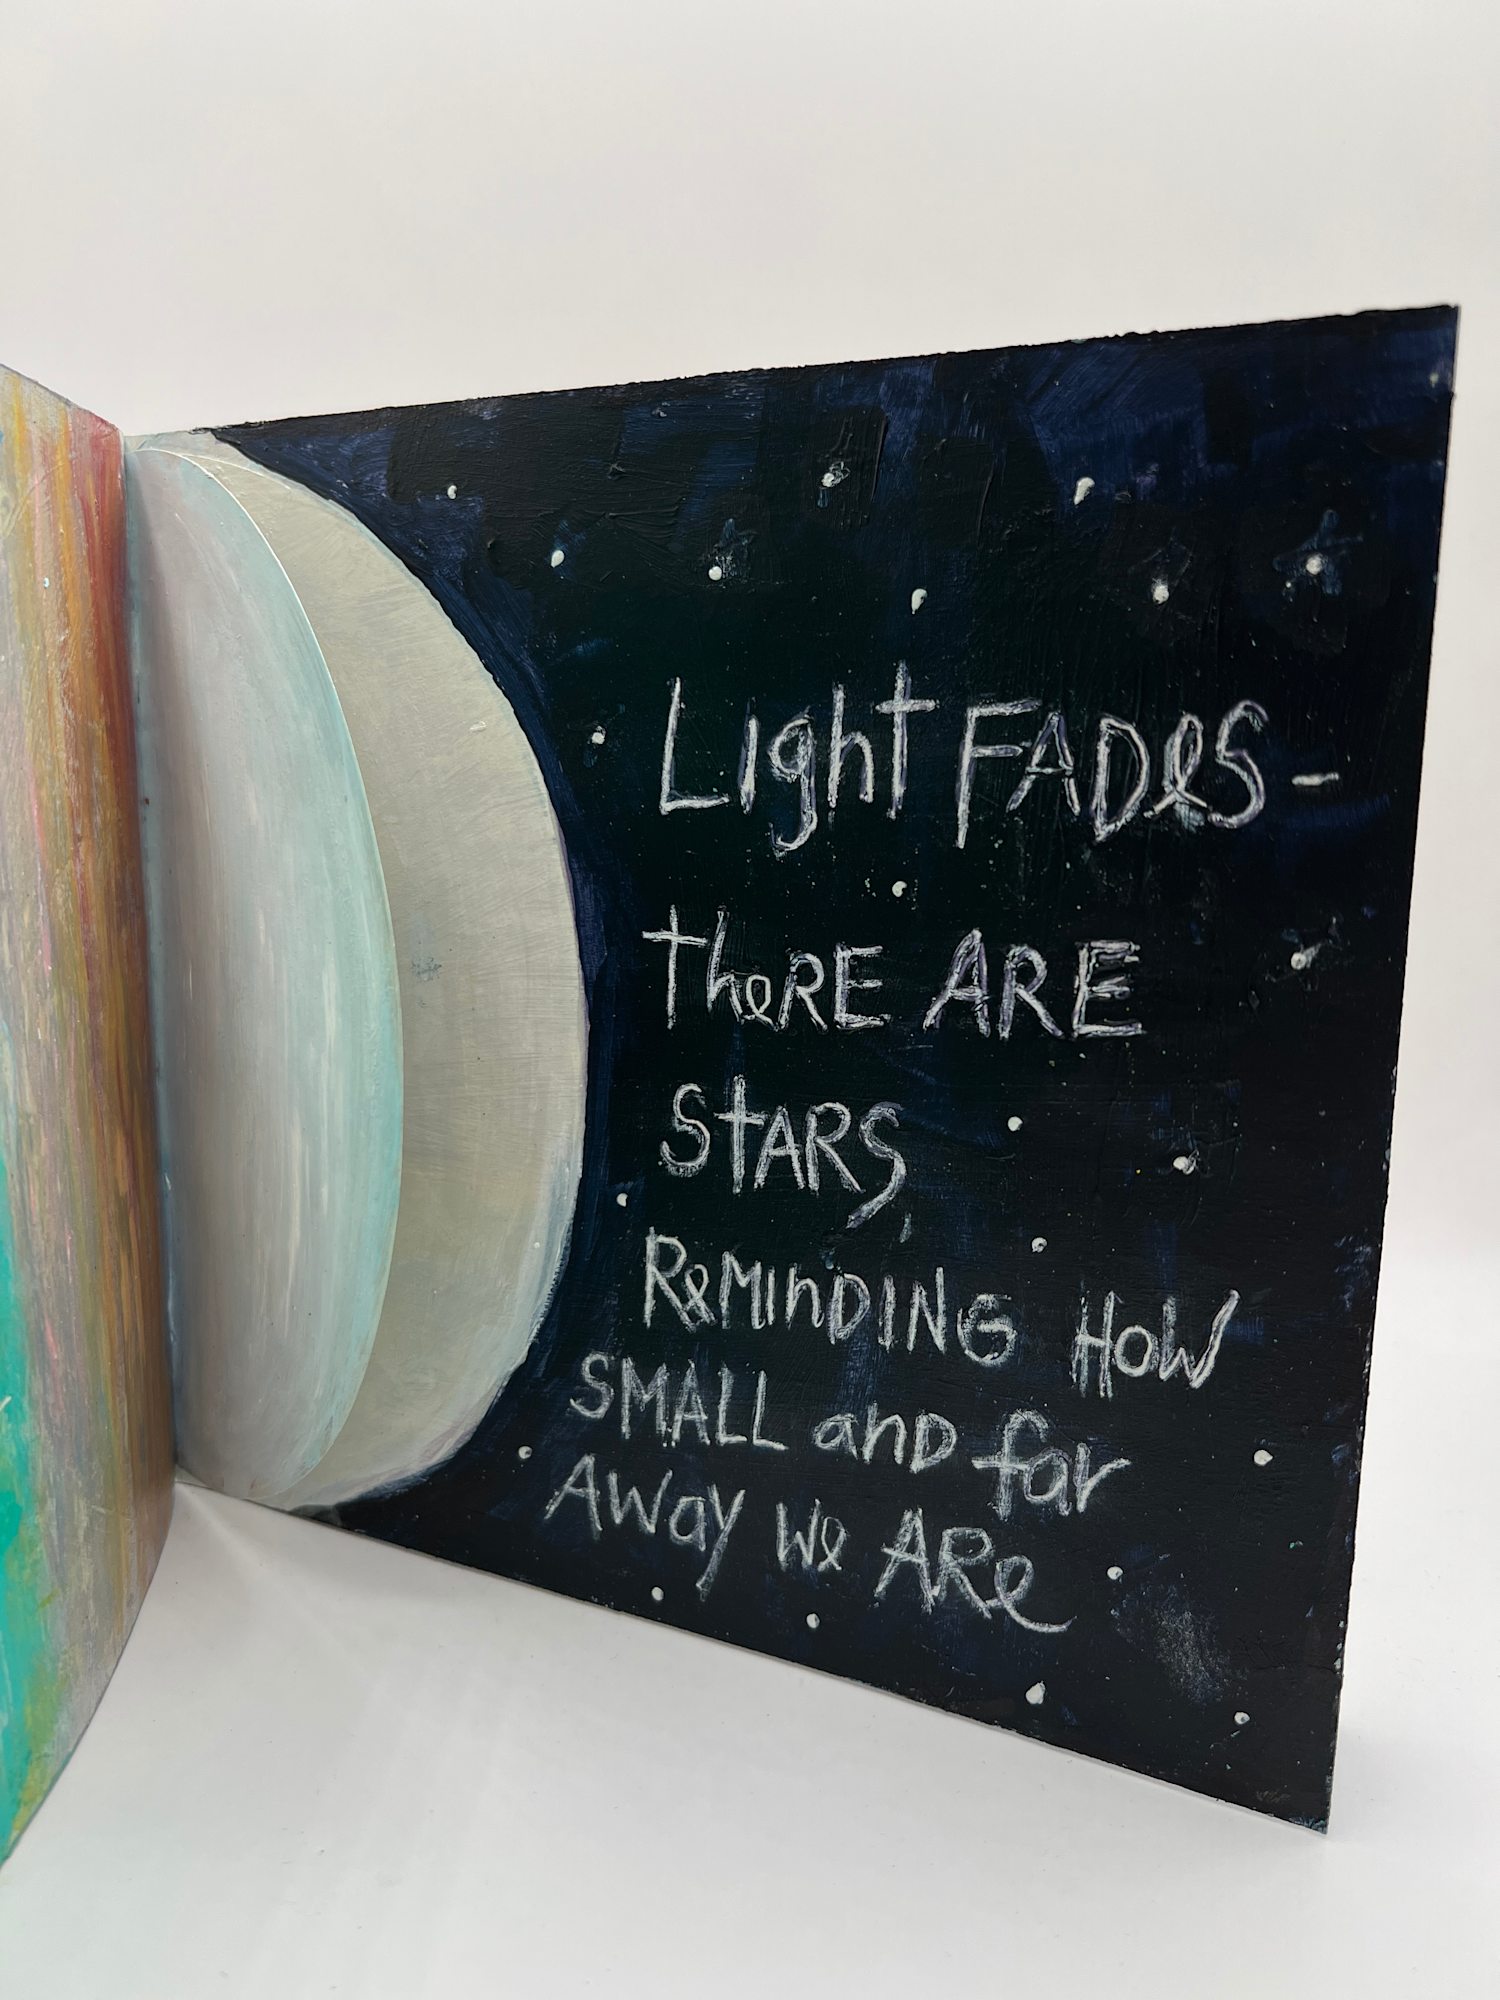 Light FADes -
theRE ARE
STARS,
ReMInDING HoW
SMALL anD far
AWay We ARe